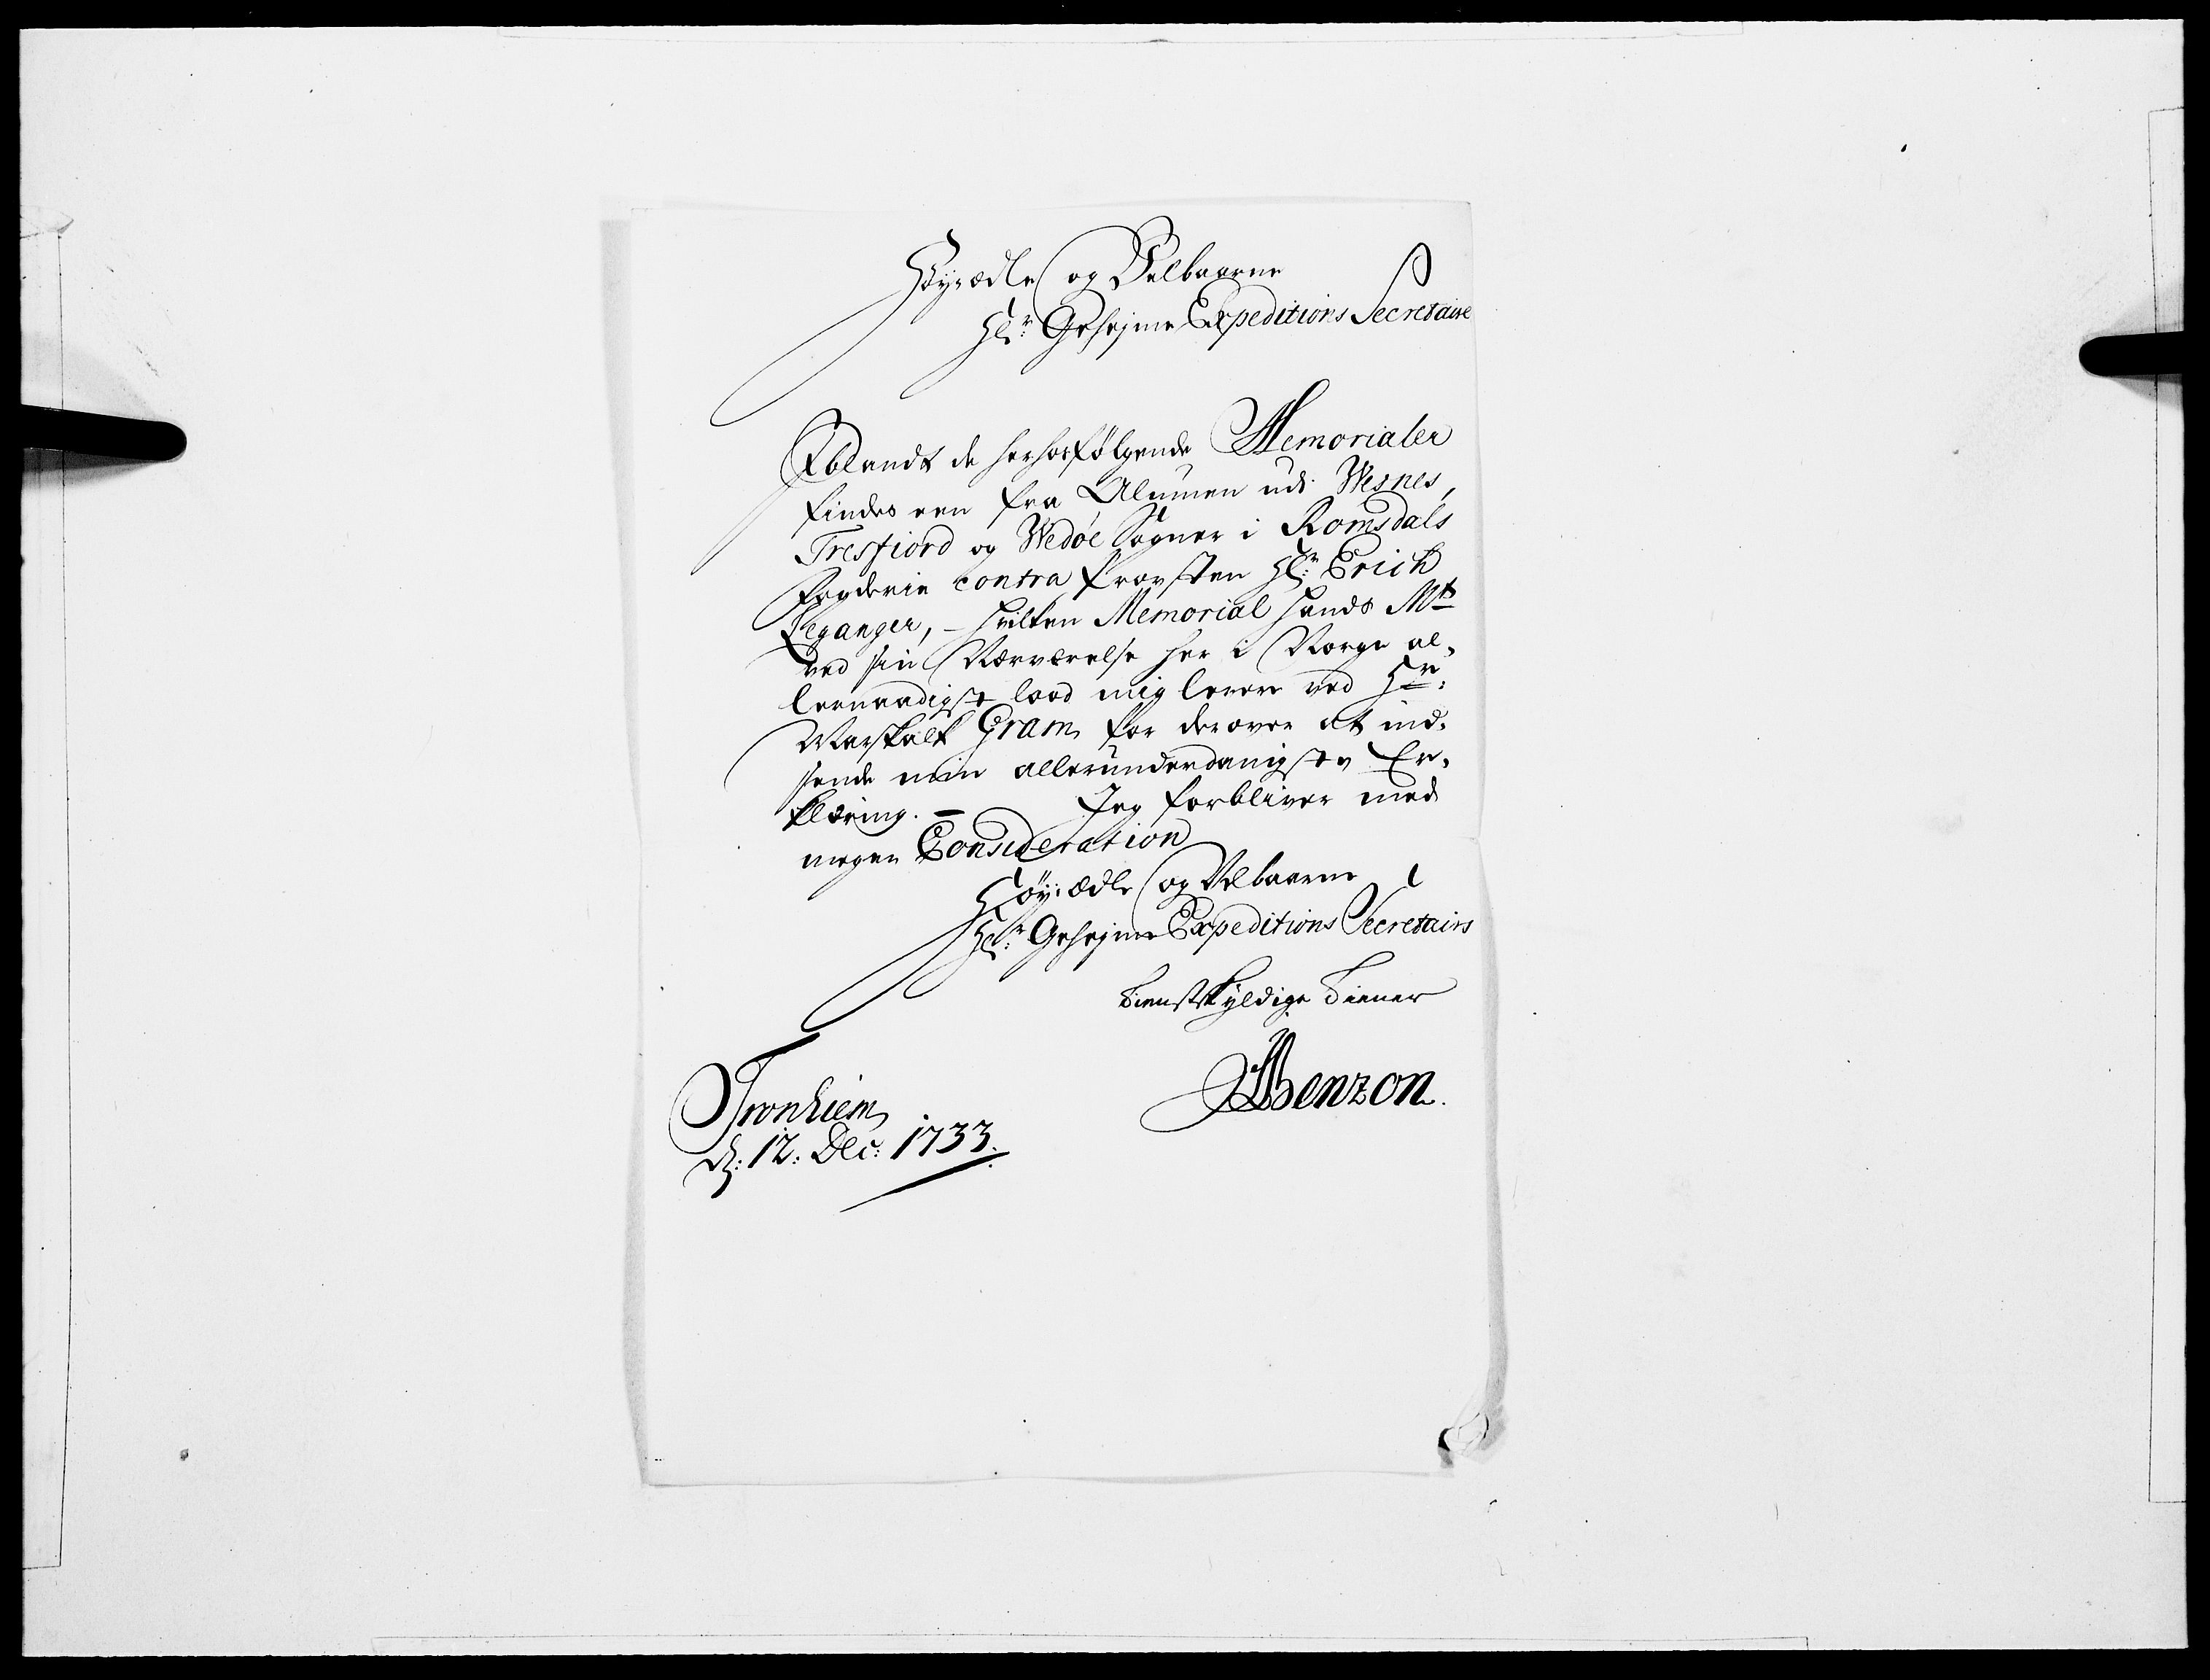 Høy-ædle og Velbaarne
Hr: Geheyme Expeditions Secretaire
Iblandt de herhosfølgende Memorialer
findes een fra Almuen udi Wesnes,
Tresfiord og Wedøe Sogner i Romsdals
Fogderie contra Provsten Hr: Erich
Leganger, - hvilken Memorial Hands Mts
ved sin Nærværelse her i Norge al-
lernaadigst lood mig levere ved Hr:
Marskalk Gram, for derover at ind-
sende min allerunderdanigste Er-
klæring. - Jeg forbliver med
megen Consideration
Høy-ædle og Velbaarne
Hr: Geheyme Expeditions Secretairs
tienstskyldige tiener
Benzon.
Tronhiem
d: 12: Dec: 1733.